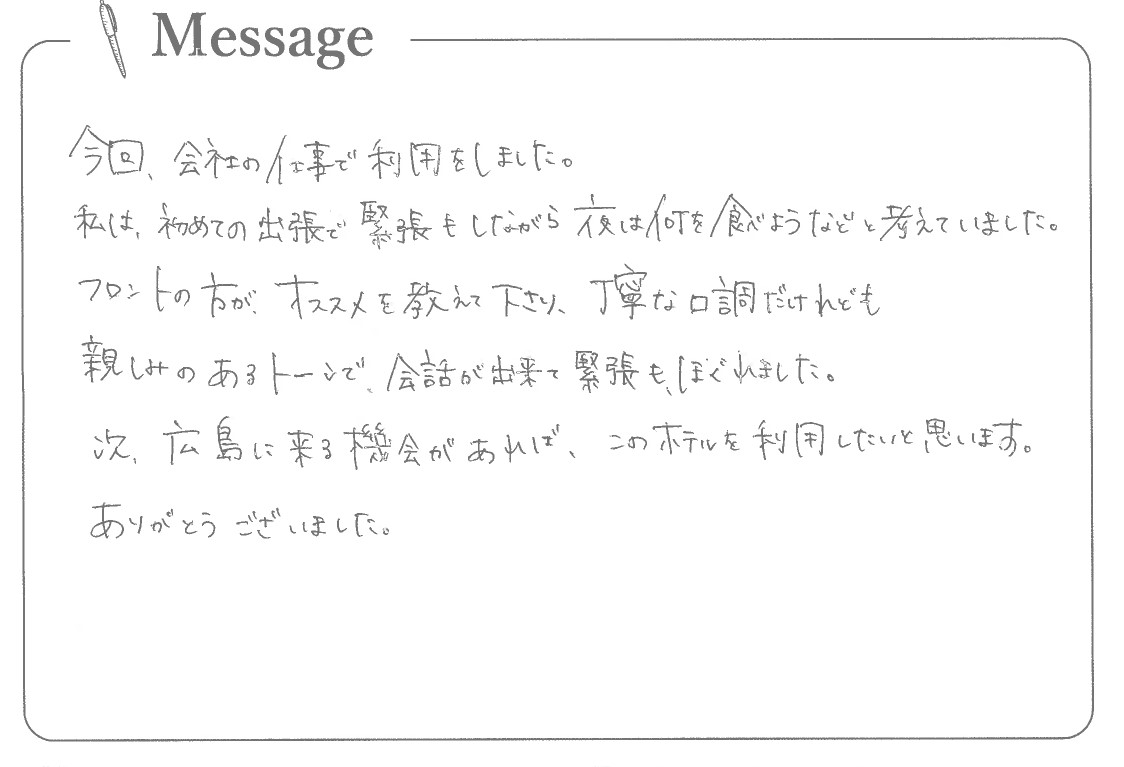 Message
今回、会社の仕事で利用をしました。
私は、初めての出張で緊張もしながら夜は何を食べようなどと考えていました。
フロントの方が、オススメを教えて下さり、丁寧な口調だけれども
親しみのあるトーンで、会話が出来て緊張も、ほぐれました。
次、広島に来る機会があれば、このホテルを利用したいと思います。
ありがとうございました。